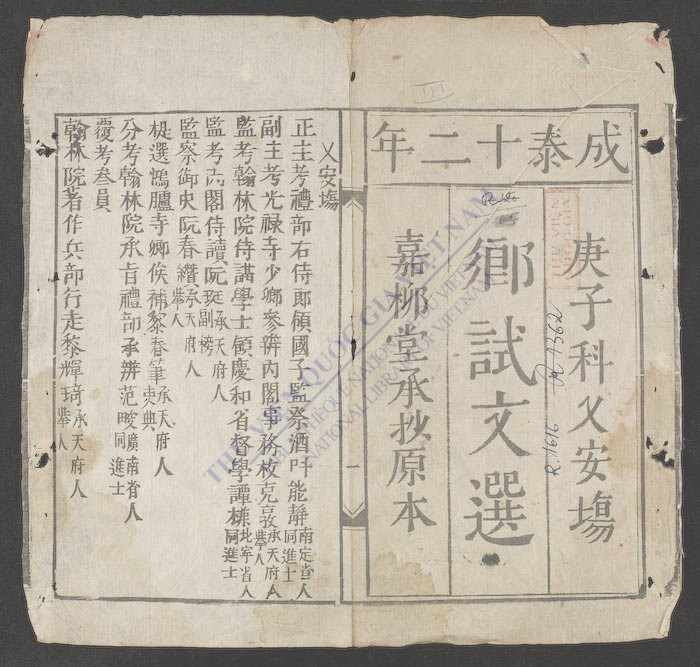 成泰十二年
庚子科乂安塲
鄉試文選
嘉柳堂承抄原本
R.1616
乂安塲
正主考禮部右侍郎領國子監祭酒吁能靜南定省人同進士
副主考光禄寺少卿參辦內閣事務枚克敦承天府人舉人
監考翰林院侍講學士領慶和省督學譚樣北寧省人同進士
監考內閣侍讀阮珽承天府人副榜
監察御史阮春纘承天府人舉人
提選鴻臚寺卿候補黎春筆承天府人吏典
分考翰林院承旨禮部承辨范畯廣南省人同進士
覆考叁員
翰林院著作兵部行走黎輝琦承天府人舉人
一
THƯ VIỆN QUỐC GIA VIỆT NAM
BIBLIOTHÈQUE NATIONALE DU VIETNAM
NATIONAL LIBRARY OF VIETNAM